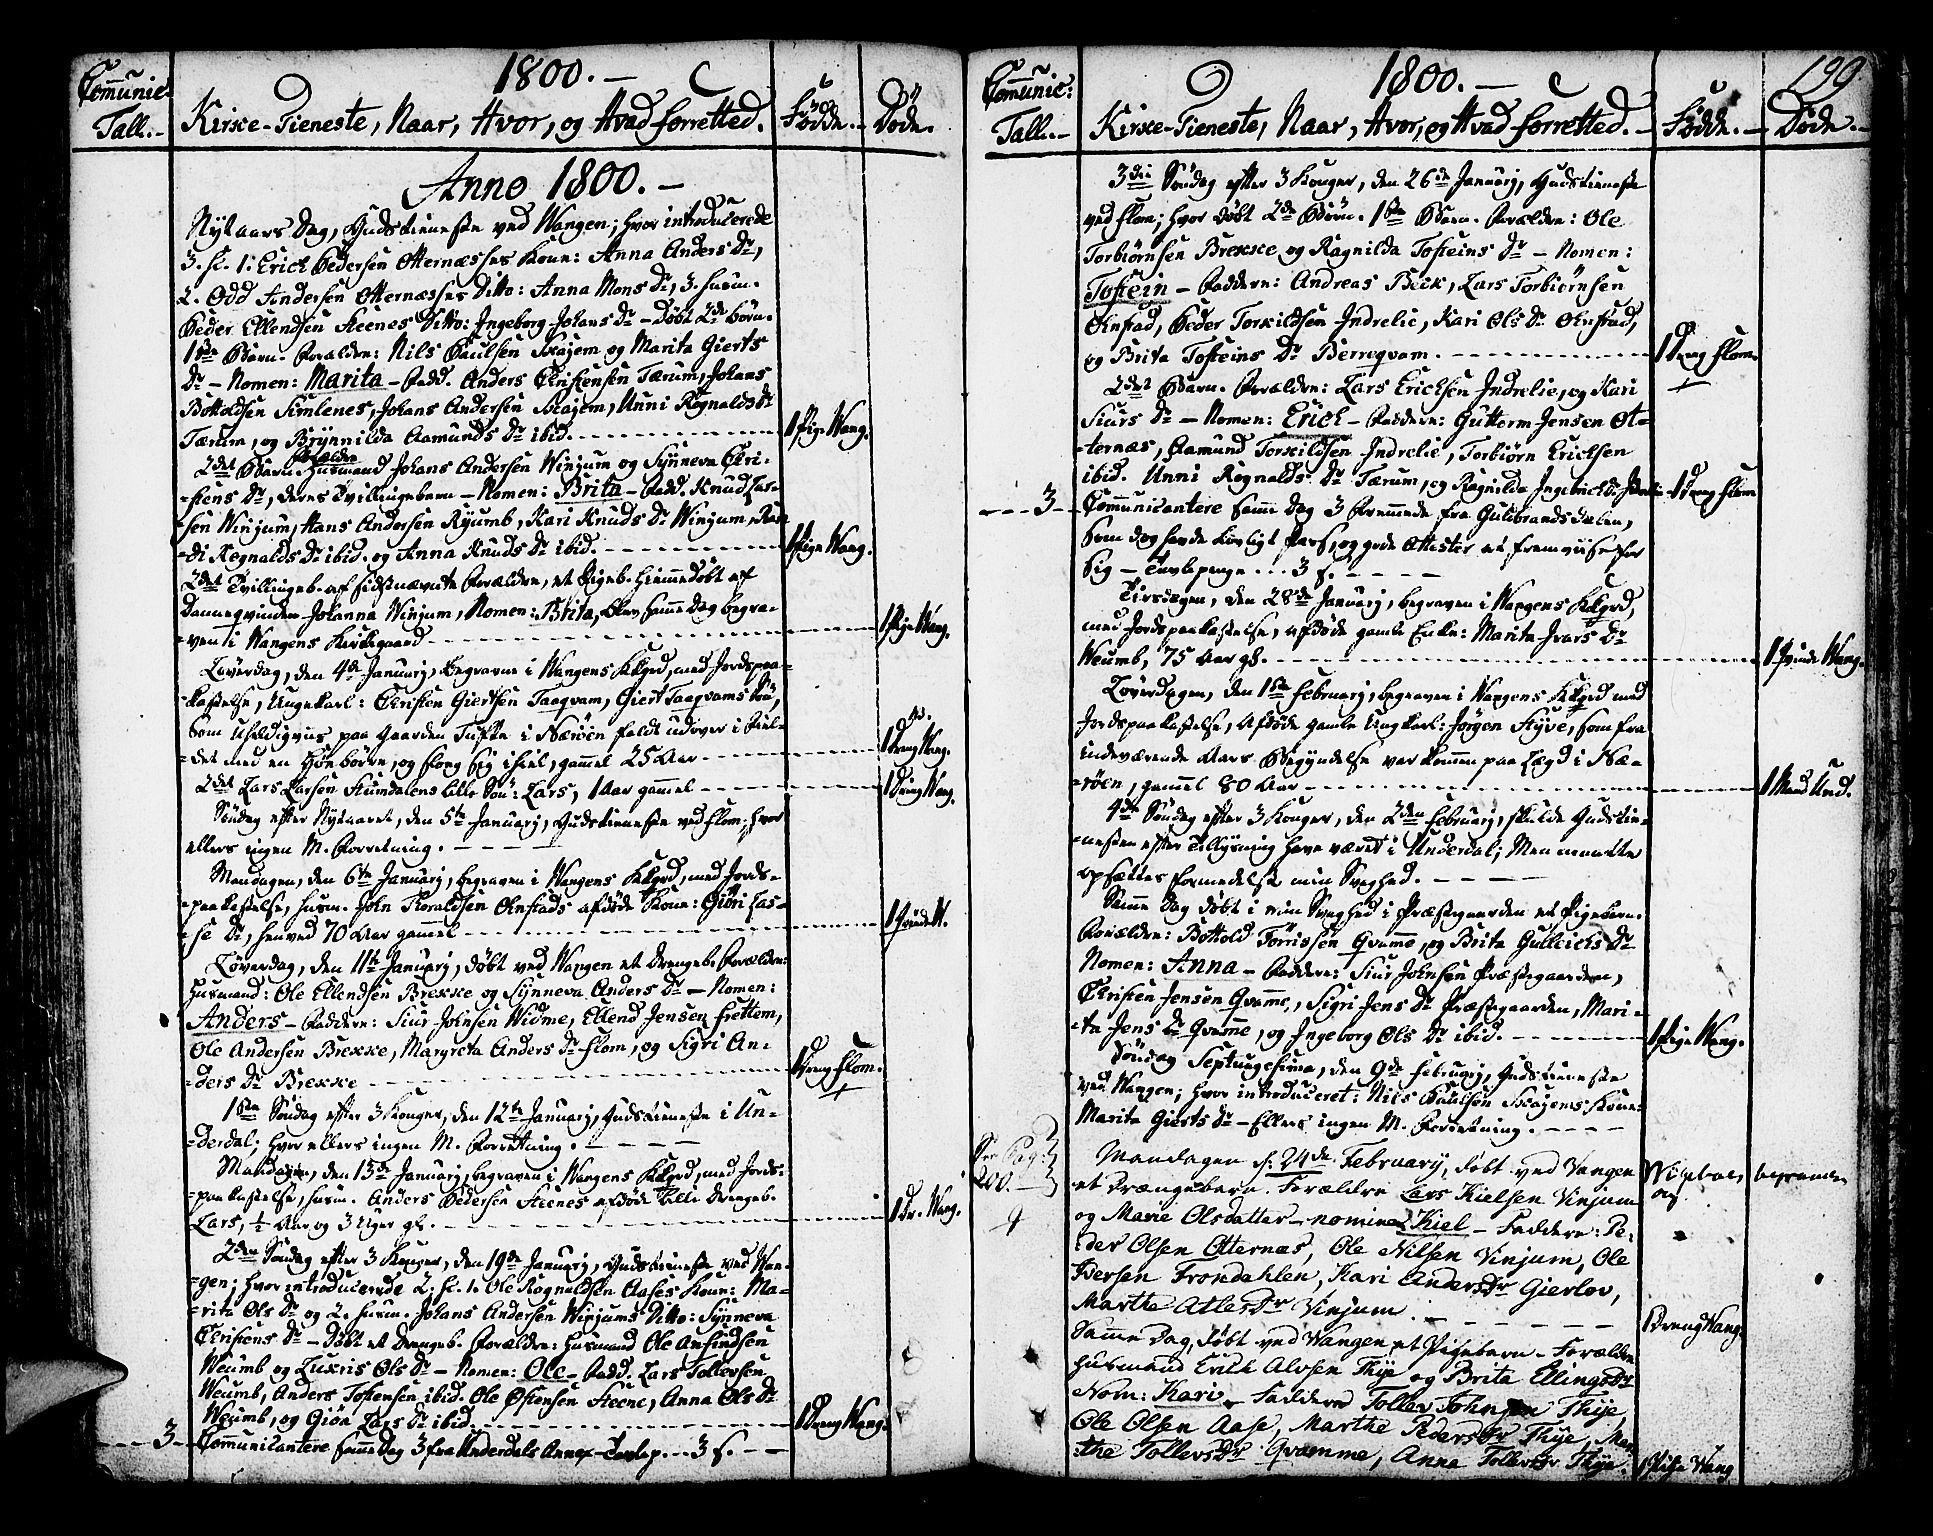 1800.–
Communic:
Tall.–
Kirke-Tieneste, Naar, Hvor, og Hvad forretted.
Födde.–
Döde.
Anno 1800.–
Nytaars Dag, Gudstieneste ved Wangen; hvor introducerede
3. sc. 1: Erick Pedersen Otternæsses Kone: Anna Anders Dr,
2. Odd Andersen Otternæsses Ditto: Anna Mons Dr, 3. husm.
Peder Ellendsen Steenes Ditto: Ingeborg Johans Dr – Döbt 2de Börn.
1ste Barn. Forældre: Nils Paulsen Skajem og Marita Gierts
Dr – Nomen: Marita – Fadd. Anders Christensen Tærum, Johans
Bottoldsen Simlenes, Johans Andersen Skajem, Unni Rognalds Dr
Tærum, og Brynnilda Aamunds Dr ibid.
1 Pige Wang.
Forældre
2det Barn. Husmand Johans Andersen Winjum og Synneva Chri-
=stens Dr, deres Tvillingebarn – Nomen: Brita – Fadd. Knud Lar-
sen Winjum, Hans Andersen Ryumb, Kari Knuds Dr Winjum, Ran
=di Regnalds Dr ibid. og Anna Knuds Dr ibid.
1 Pige Wang.
2det Tvillingeb. af sidstnævnte Forældre, et Pigeb. hiemmedöbt af
Dannequinden Johanna Winjum, Nomen: Brita, blev samme Dag begra-
=ven i Wangens Kirkegaard
1 Pige Wang.
Löverdag, den 4de Januarj, begraven i Wangens Kkgrd, med Jordspaa-
=kastelse, Ungekarl: Christen Giertsen Taagvam, Giert Taagvams Sön,
som uheldigviis paa Gaarden Tufte i Næröen faldt udover i Fiel-
=det med en Höebörre, og slog sig ihiel, gammel 25 Aar
1 Dreng Wang.
2det Lars Larsen Stundalens lille Sön: Lars, 1 Aar gammel
1 Dreng Wang.
Söndag efter Nytaaret, den 5te Januarj, Gudstieneste ved Flom; hvor
ellers ingen M. Forretning.
Mandagen, den 6te Januarj, begraven i Wangens Kkgrd, med Jords-
=paakastelse, husm. John Haraldsen Ohnstads afdöde Kone: Giöri Las-
=se Dr, henved 70 Aar gamel
1 Qvinde W.
Löverdag, den 11te Januarj, döbt ved Wangen et Drengeb. Forældre:
Husmand: Ole Ellendsen Brekke og Synneva Anders Dr – Nomen:
Anders – Faddere: Siur Johnsen Widme, Ellend Jensen Frettem,
Ole Andersen Brekke, Margreta Anders Dr Flom, og Sigri An-
=ders Dr Brekke
1 Dreng Flom.
1ste Söndag efter 3 Konger, den 12te Januarj, Gudstieneste i Un-
=derdal; hvor ellers ingen M. Forretning.
Mandagen, den 13de Januarj, begraven i Wangens Kkgrd, med Jords-
=paakastelse, husm. Anders Pedersen Steenes afdöde lille Drengeb.
Lars, ½ Aar og 3 Uger gl.
1 Dr. Wang.
2den Söndag efter 3 Konger, den 19de Januarj, Gudstieneste ved Wan-
=gen; hvor introducerede 2. sc. 1. Ole Rognaldsen Aases Kone: Ma-
=rita Ols Dr og 2. husm. Johans Andersen Winjums Ditto: Synneva
Christens Dr – Döbt et Drengeb. Forældre: Husmand Ole Anfindsen
Weumb og Luxris Ols Dr – Nomen: Ole – Fadd. Lars Tollevsen
Weumb, Anders Tostensen ibid. Ole Östensen Steene, Anna Ols Dr
Weumb, og Giöa Lars Dr ibid.
1 Dreng Wang.
3
Communicantere samme Dag 3 fra Underdals Annex – Tavlep. .. 3 s.
1800.–
199
Communic:
Tall.–
Kirke-Tieneste, Naar, Hvor, og Hvad forretted.–
Födde.–
Döde.–
3die Söndag efter 3 Konger, den 26de Januarj, Gudstieneste
ved Flom; hvor döbt 2de Börn. 1ste Barn. Forældre: Ole
Torbiörnsen Brekke og Ragnilda Tosteins Dr – Nomen:
Tostein – Faddere: Andreas Beck, Lars Torbiörnsen
Ohnstad, Peder Torkildsen Indrelie, Kari Ols Dr Ohnstad,
og Brita Tosteins Dr Berreqvam.
1 Dreng Flom.
2det Barn. Forældre: Lars Ericksen Indrelie, og Kari
Siurs Dr – Nomen: Erick – Faddere: Guttorm Jensen Ot-
=ternæs, Aamund Torkildsen Indrelie, Torbiörn Ericksen
ibid. Unni Rognalds Dr Tærum, og Ragnilda Ingebrickts Dr Indrelie
1 Dreng Flom
3
Communicantere samme Dag 3 Fremmede fra Guldbrandsdalen,
som dog havde lovligt Pass, og gode Attester at fremviise for
sig – Tavlepenge ... 3 s.
Tirsdagen, den 28de Januarj, begraven i Wangens Kkgrd,
med Jordspaakastelse, afdöde gamle Enke: Marita Ivars Dr
Weumb, 75 Aar gl.
1 Qvinde Wang.
Löverdagen, den 1ste Februarj, begraven i Wangens Kkgrd med
Jordspaakastelse, afdöde gamle Ungkarl: Jörgen Styve, som fra
indeværende Aars Begyndelse var kommen paa Lægd i Næ-
=röen, gammel 80 Aar
1 Mand Und.
4de Söndag efter 3 Konger, den 2den Februarj, skulde Gudstie-
=nesten efter Tillysning have været i Underdal; Men maatte
opsættes formedelst min Svaghed.
Samme Dag döbt i min Svaghed i Præstegaarden et Pigebarn.
Forældre: Bottold Törrissen Qvamme, og Brita Gulleichs Dr
Nomen: Anna – Faddere: Siur Johnsen Præstegaarden,
Christen Jensen Qvamme, Sigri Jens Dr Præstegaarden, Mari-
=ta Jens Dr Qvamme, og Ingeborg Ols Dr ibid.
1 Pige Wang.
Söndag Septuagesima, den 9de Februarj, Gudstieneste
ved Wangen; hvor introduceret: Nils Paulsen Skajems Kone:
Marita Gierts Dr – Ellers ingen M. Forretning.
See Pag:
200.
Mandagen d: 24de February, döbt ved Vangen
et Drængebarn. Forældre Lars Kielsen Vinjum
og Marie Olsdatter – nomine Kiel – Faddere: Pe-
der Olsen Otternæs, Ole Nilsen Vinjum, Ole
Iversen Frondahlen, Kari Anders Dr Gierlov,
Marthe Atles Dr Vinjum
Dreng Wang.
Samme Dag, döbt ved Vangen et Pigebarn – Forældre
Husmand Erik Alvsen Thye og Brita Ellings Dr
Nom: Kari – Faddere Tollev Johnsen Thye,
Ole Olsen Aase, Marthe Peders Dr Thye, Mar
the Tollevs Dr Qvamme, Anna Tollevs Dr Thye.
1 Pige Wang